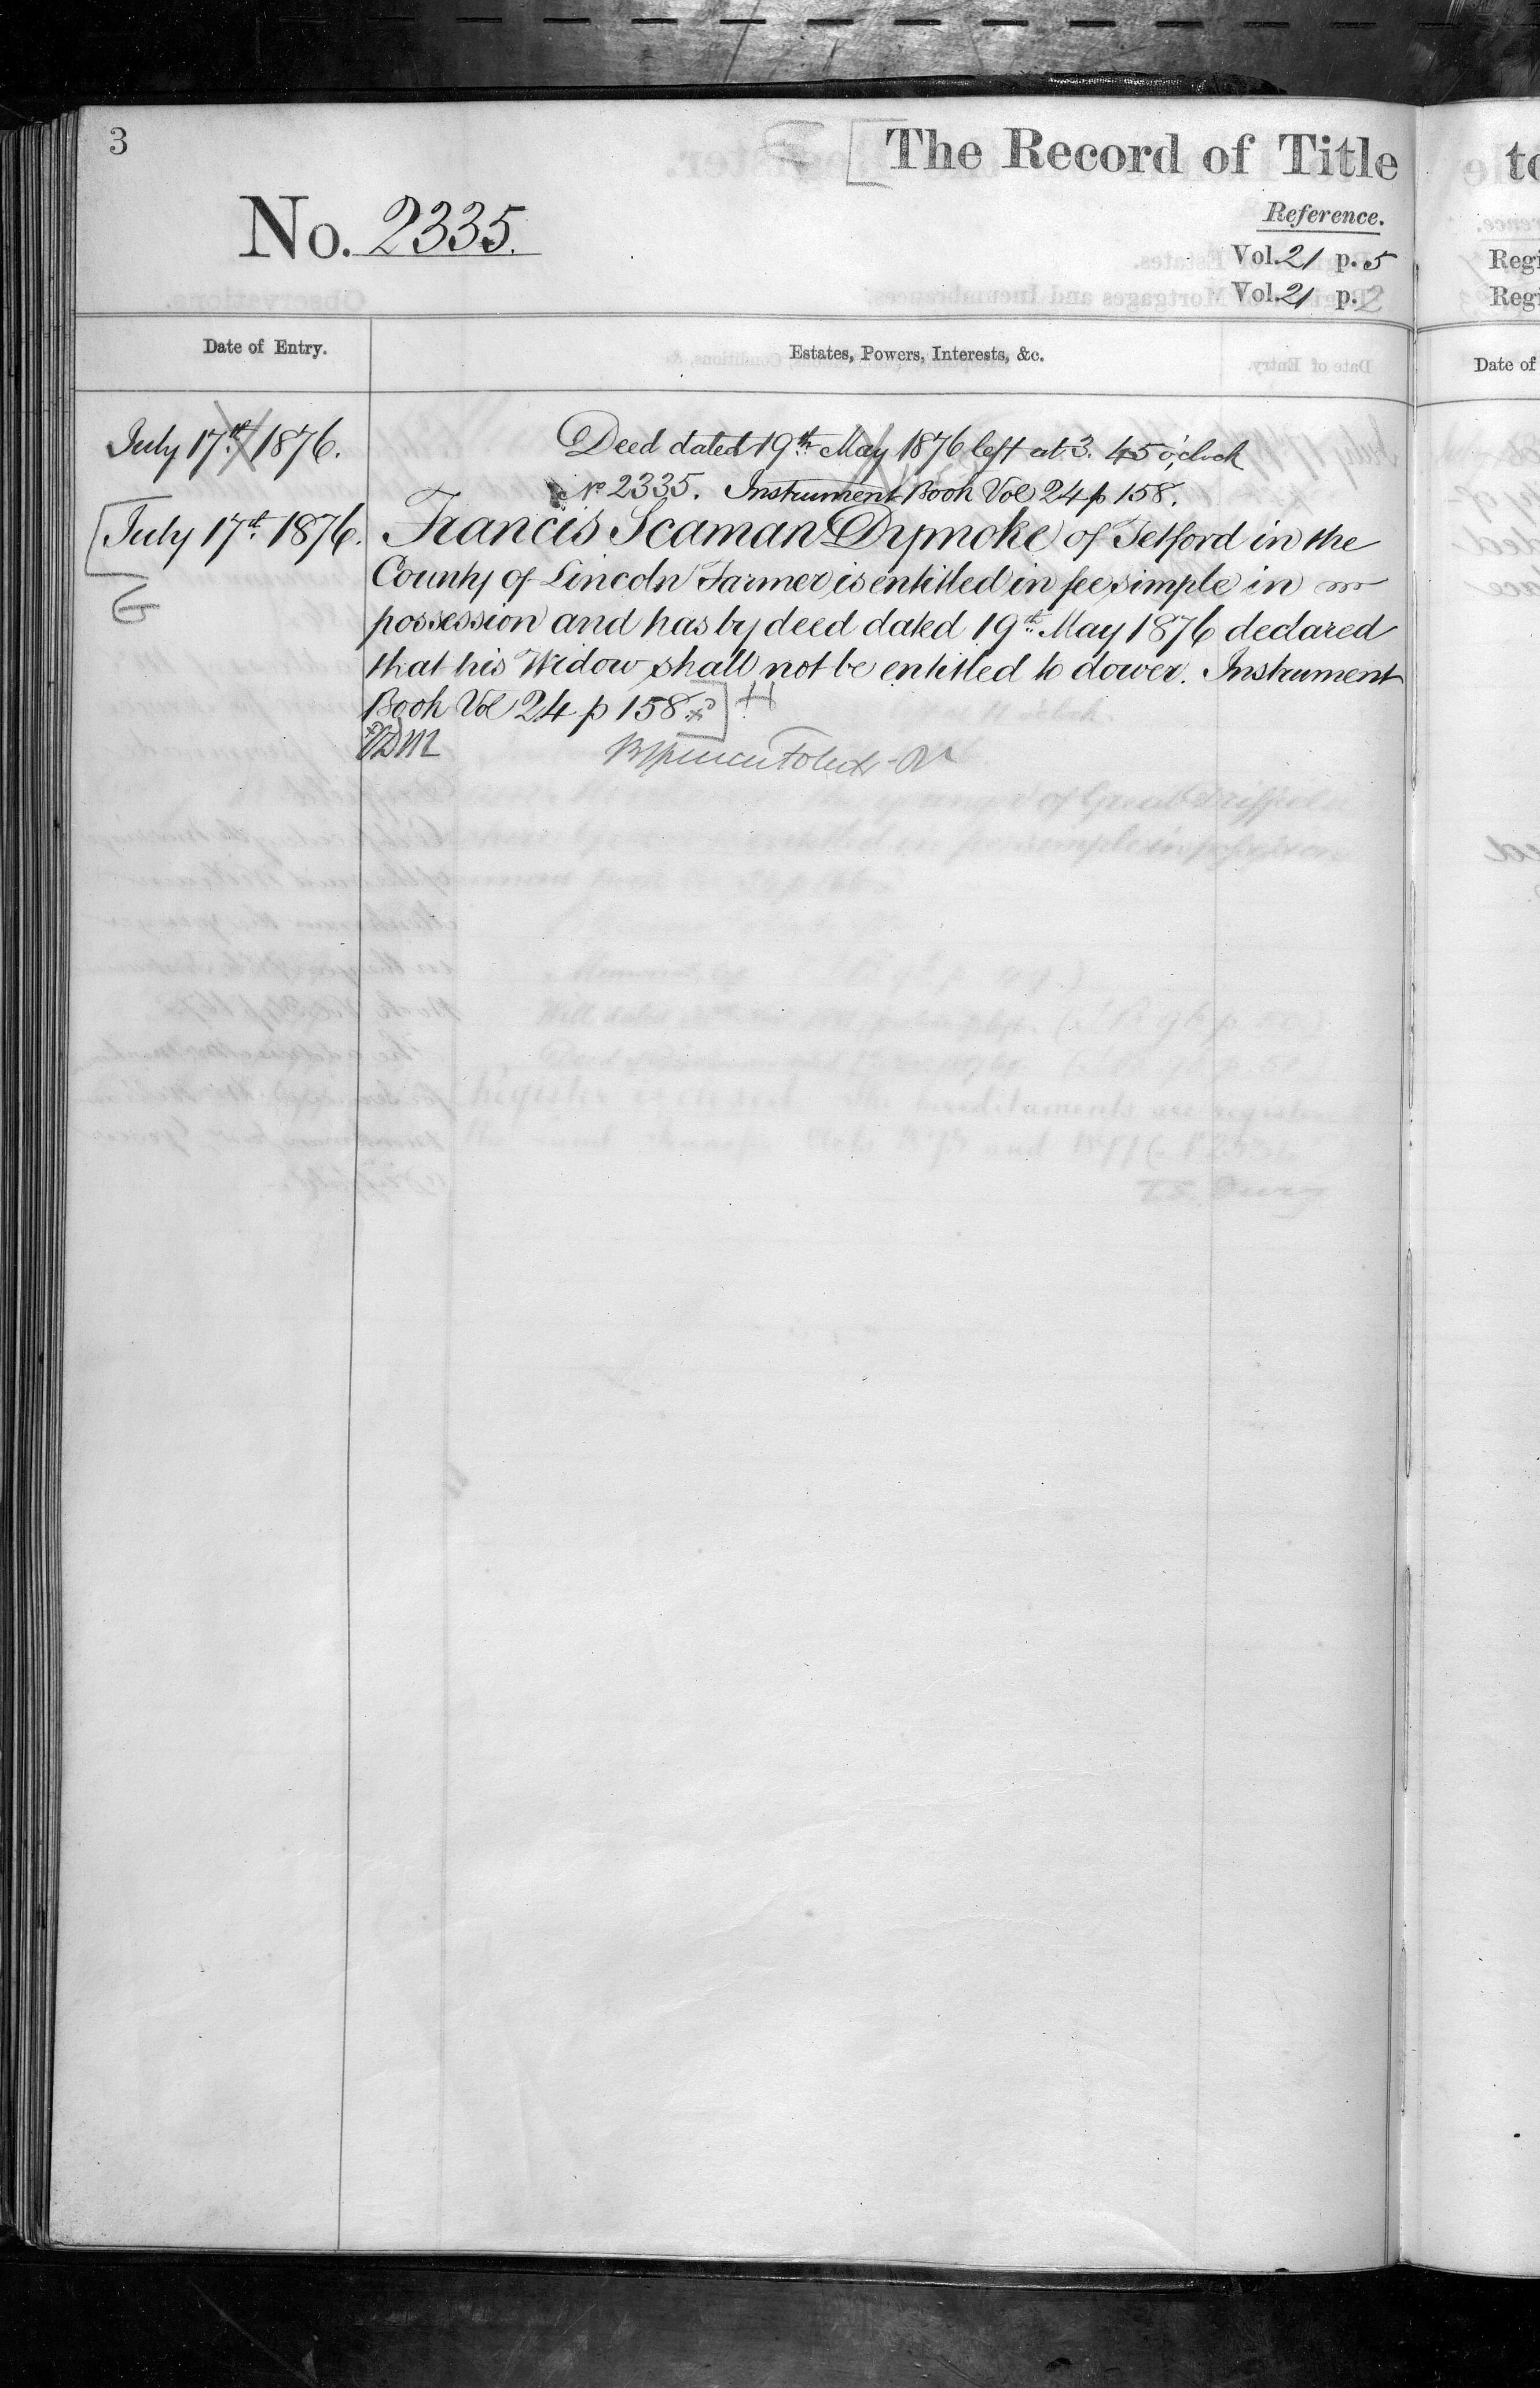 3
The Record of Title
No. 2335.
Reference.
Vol. 21 p. 5
Vol. 21 p. 2
Date of Entry.
Estates, Powers, Interests, &c.
July 17th 1876.
Deed dated 19th May 1876 left at 3. 45 o'clock
No 2335. Instrument Book Vol 24 p 158.
July 17th 1876.
Francis Seaman Dymoke of Tetford in the
County of Lincoln Farmer is entitled in fee simple in
possession and has by deed dated 19th May 1876 declared
that his Widow shall not be entitled to dower. Instrument
Book Vol 24 p 158
G
H
to
Regi
Regi
Date of